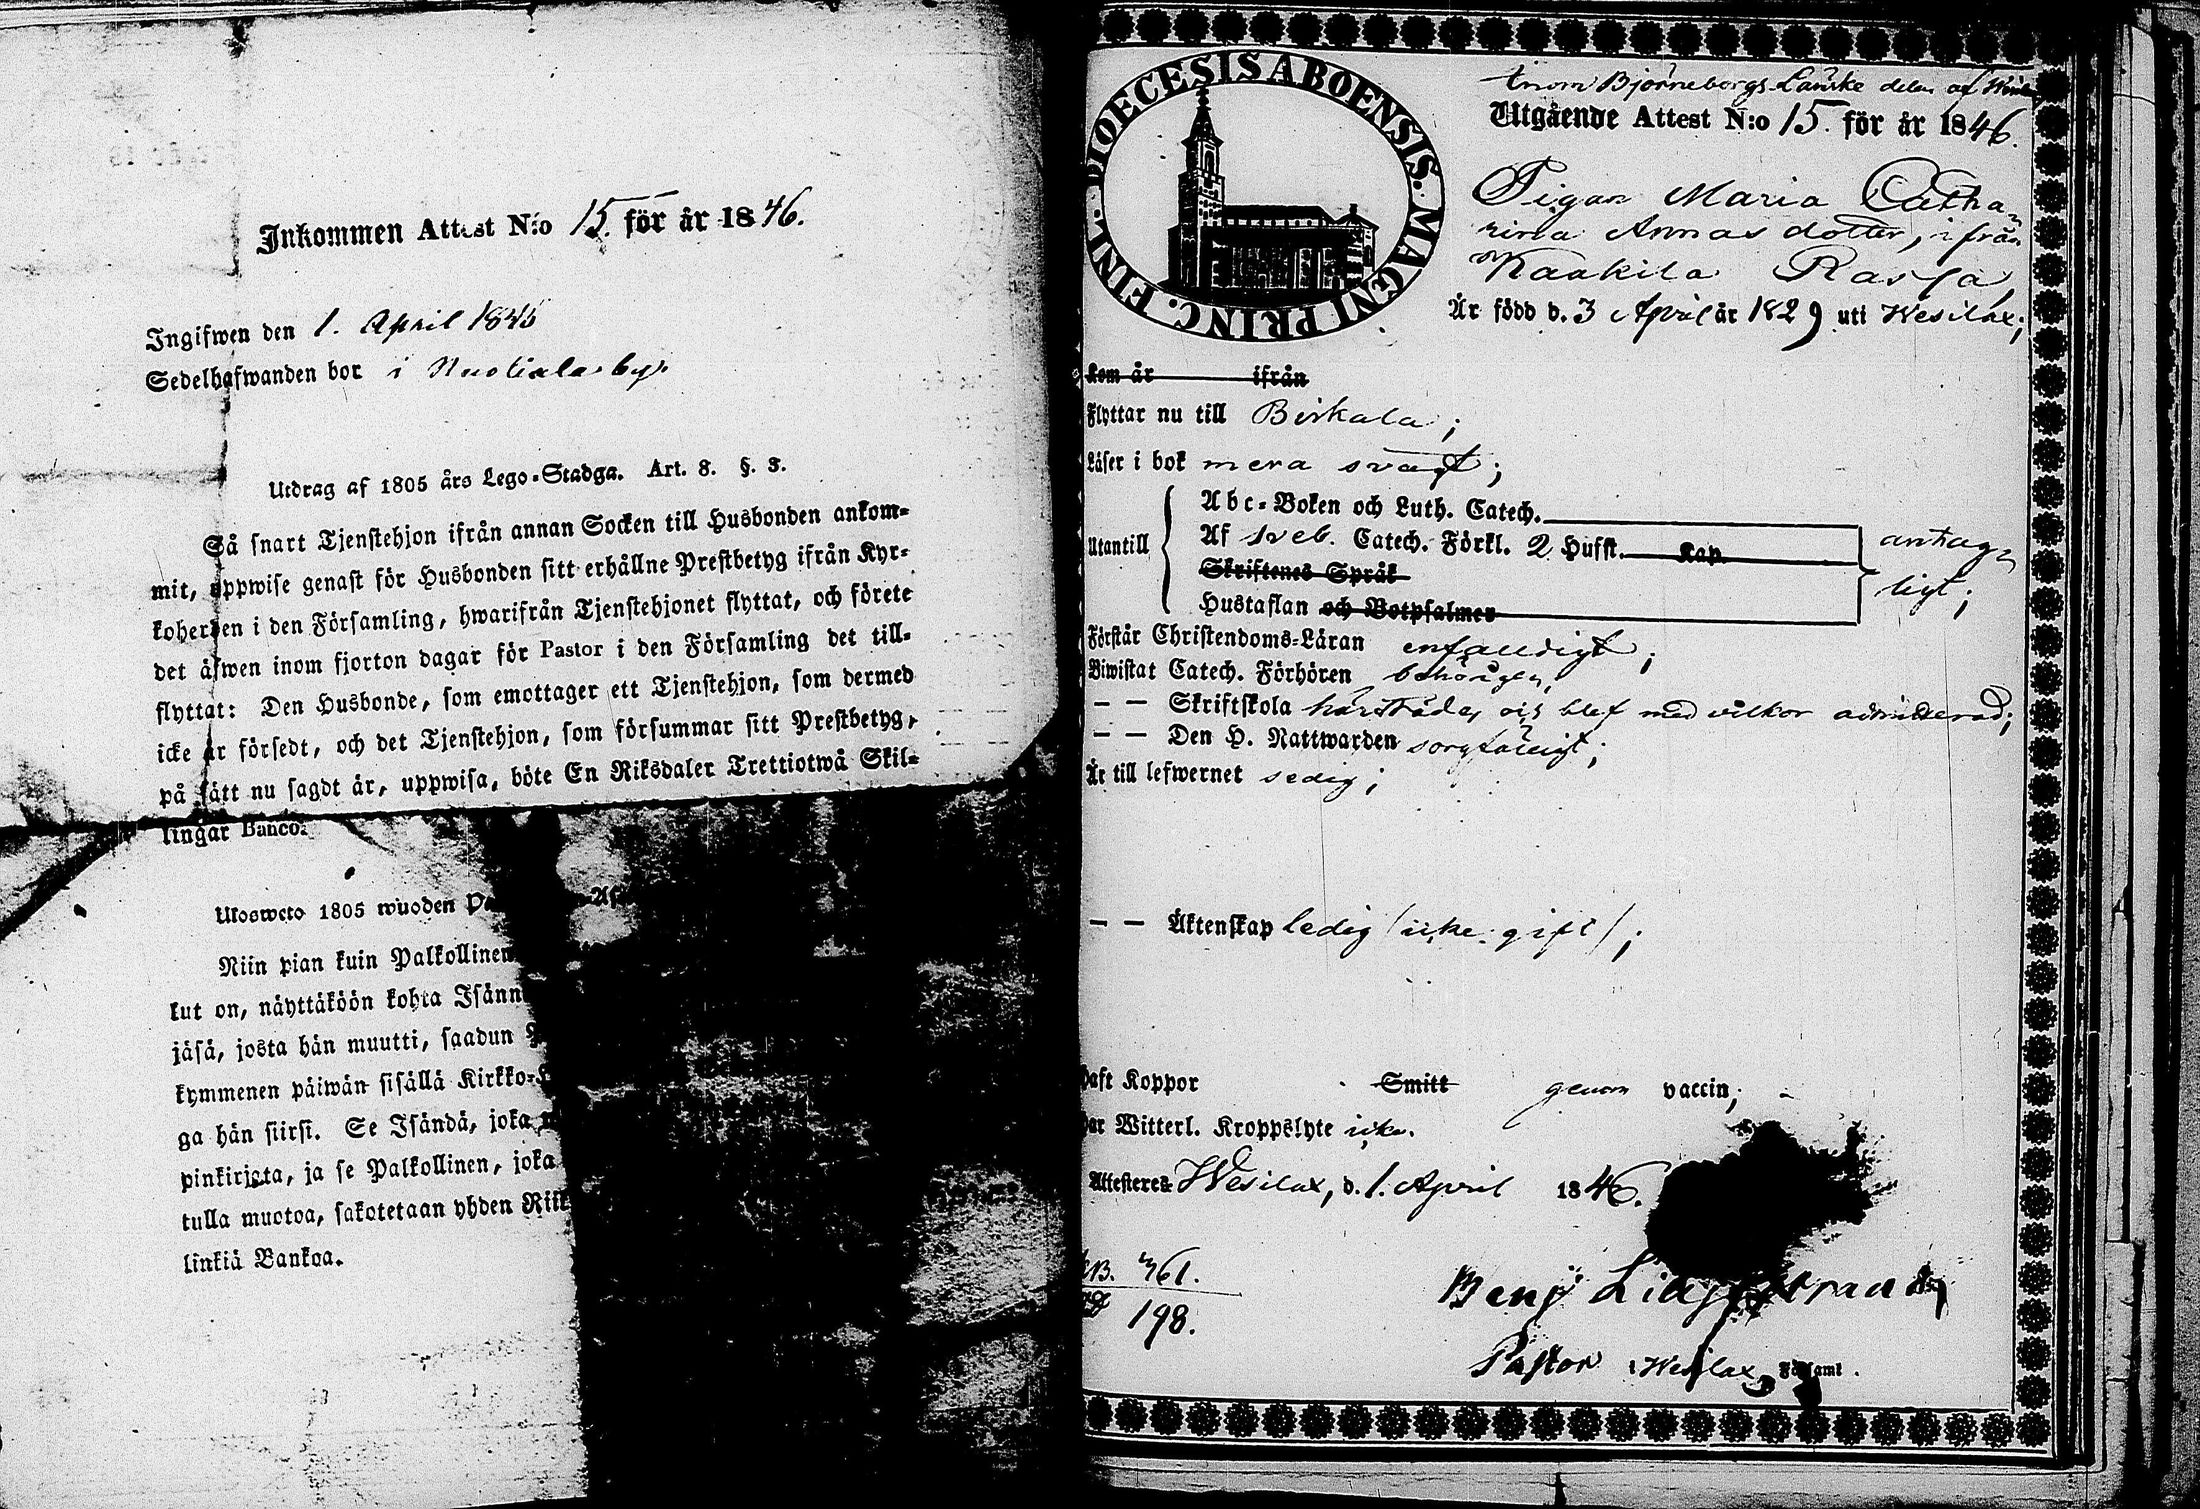 Inkommen Attest N:o 15. för år 1846.
Ingifwen den 1. April 1846
Sedelhafwanden bor i Nuoliala by.
Utdrag af 1805 års Lego-Stadga. Art. 8. §. 3.
Så snart Tjenstehjon ifrån annan Socken till Husbonden ankom-
mit, uppwise genast för Husbonden sitt erhållne Prestbetyg ifrån Kyr-
koherden i den Församling, hwarifrån Tjenstehjonet flyttat, och förete
det äfwen inom fjorton dagar för Pastor i den Församling det till-
flyttat: Den Husbonde, som emottager ett Tjenstehjon, som dermed
icke är försedt, och det Tjenstehjon, som försummar sitt Prestbetyg,
på sätt nu sagdt är, uppwisa, böte En Riksdaler Trettiotwå Skil-
lingar Banco.
Ulosweto 1805 wuoden
Niin pian kuin Palkollinen
kut on, näyttäköön kohta Isänn
jäsä, josta hän muutti, saadun
kymmenen päiwän sisällä Kirkko-
ga hän siirsi. Se Isändä, joka
pinkirjata, ja se Palkollinen, joka
tulla muotoa, sakotetaan yhden Riik
linkiä Bankoa.
DIOECESIS ABOENSIS. MAGNI PRINC. FINL.
inom Björneborgs Länske delen af
Utgående Attest N:o 15. för år 1846.
Pigan Maria Catha-
rina Annasdotter, ifrån
Kaakila Rasja,
Är född d. 3 April år 1829 uti Wesilax;
Kom år ifrån
Flyttar nu till Birkala;
Läser i bok mera svagt;
Utantill
Abc-Boken och Luth. Catech.
Af sveb. Catech. Förkl. 2 Hufst. Kap.
Skriftenes Språk
Hustaflan och Botpsalmer
antag-
ligt;
Förstår Christendoms-Läran enfaldigt;
Biwistat Catech. Förhören behörigen,
— — Skriftskola härstädes och blef med vilkor admitterad;
— — Den H. Nattwarden sorgfälligt;
Är till lefwernet sedig;
— — Äktenskap ledig /icke gift/;
Haft Koppor Smitt genom vaccin;
Har Witterl. Kroppslyte icke.
Attesteres Wesilax, d. 1. April 1846.
KB. 361.
198.
Benj. Lilj
Pastor i Wesilax Församl.